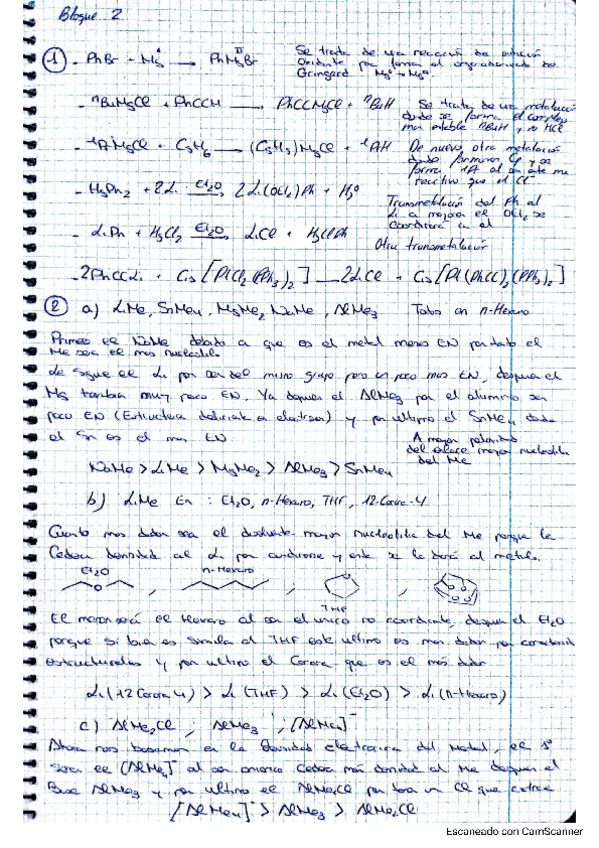 Bloque 2
① - PhBr + Mg⁰ → PhMgBr
Se trata de una reacción de adición
Oxidante para formar el organo de
Gringard Mg⁰ → Mgᴵᴵ
- ⁿBuMgCl + PhCCH → PhCCMgCl + ⁿBuH
Se trata de una metalación
donde se forma el complejo
mas estable ⁿBuH y no HCl
MgCl + C₅H₆ → (C₅H₅)MgCl +
De nuevo otra metalación
donde Cp y se
forma al ser este mas
reactivo que el
- HgPh₂ + 2Li Et₂O → 2Li(OEt₂)Ph + Hg⁰
Transmetalación del Ph al
Li a mejora el OEt₂ se
coordinará en el
- LiPh + HgCl₂ Et₂O → LiCl + HgClPh
Otra transmetalación
- 2PhCCLi + Cis[PtCl₂(PPh₃)₂] → 2LiCl + Cis[Pt(PhCC)₂(PPh₃)₂]
② a) LiMe, SnMe₄, MgMe₂, NaMe, AlMe₃ Todos en n-Hexano
Primero el NaMe debido a que es el metal menos EN por tanto el
Me sea el mas nucleófilo
de sigue el Li por ser del mismo grupo pero un poco mas EN, despues el
Mg tambien muy poco EN. Ya despues el AlMe₃ por el aluminio ser
poco EN (Estructura deficiente a electrones) y por ultimo el SnMe₄ donde
el Sn es el mas EN
A mayor polaridad
del enlace mayor nucleofilia
del Me
NaMe > LiMe > MgMe₂ > AlMe₃ > SnMe₄
b) LiMe En : Et₂O, n-Hexano, THF, 12-Corona-4
Cuanto mas dador sea el disolvente mayor nucleofilia del Me porque le
Cedera densidad al Li por coordinarse y este se la dará al metilo.
Et₂O n-Hexano
THF
El menor será el Hexano al ser el unico no coordinante, despues el Et₂O
porque si bien es similar al THF este ultimo es mas dador por
estructurales y por ultimo el Corona que es el más dador
Li(12Corona4) > Li(THF) > Li(Et₂O) > Li(n-Hexano)
c) AlMe₂Cl, AlMe₃, [AlMe₄]⁻
Ahora nos basamos en la Densidad electronica del Metal, el 1º
sera el [AlMe₄]⁻ al ser anionico Cedera más densidad al Me despues el
AlMe₃ y por ultimo el AlMe₂Cl por un Cl que
[AlMe₄]⁻ > AlMe₃ > AlMe₂Cl
Escaneado con CamScanner